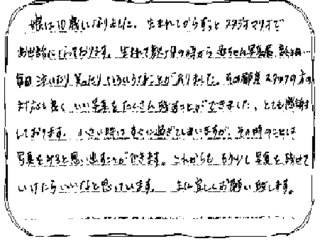 娘は10歳になりました。生まれてからずっとスタジオマリオで
お世話になっております。生まれて数ヶ月の時から
毎回 泣いたり笑ったりいろいろなことがありました。その都度スタジオの方の
対応も良く、いい写真をたくさん残すことができました。とても感謝
しております。小さい時はすぐに過ぎてしまいますが、その時のことは
写真をみると思い出すことができます。これからもずっと写真を残せて
いけたらいいなと思っています。よろしくお願い致します。